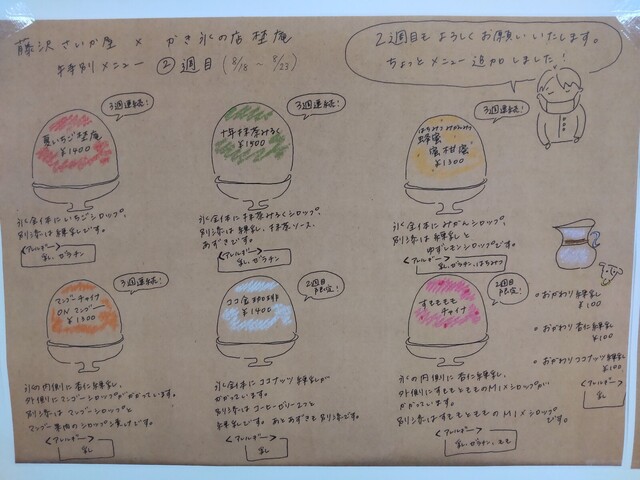 藤沢さいか屋 × かき氷の店 埜庵
特別メニュー ②週目 (8/18 ~ 8/23)
2週目もよろしくお願いいたします。
ちょっとメニュー追加しました!
3週連続!
夏いちご埜庵
¥1400
氷全体にいちごシロップ、
別添は練乳です。
<アレルギー>
乳、ゼラチン
3週連続!
十年抹茶みるく
¥1500
氷全体に抹茶みるくシロップ、
別添は練乳、抹茶ソース、
あずきです。
<アレルギー>
乳、ゼラチン
3週連続!
はちみつみかんみつ
蜂蜜
蜜柑蜜
¥1300
氷全体にみかんシロップ、
別添は練乳と
ゆずレモンシロップです。
<アレルギー>
乳、ゼラチン、はちみつ
3週連続!
マンゴーチャイナ
ONマンゴー
¥1500
氷の内側に杏仁練乳、
外側にマンゴーシロップがかかっています。
別添はマンゴーシロップと
マンゴー果肉のシロップ漬けです。
<アレルギー>
乳
2週目限定!
ココ金珈琲
¥1400
氷全体にココナッツ練乳が
かかっています。
別添はコーヒーゼリー2つと
練乳です。あとあずきも別添です。
<アレルギー>
乳
2週目限定!
すももももチャイナ
氷の内側に杏仁練乳、
外側にすもももものMIXシロップが
かかっています。
別添はすもももものMIXシロップ
です。
<アレルギー>
乳、ゼラチン、もも
・おかわり練乳
¥100
・おかわり杏仁練乳
¥100
・おかわりココナッツ練乳
¥100
<アレルギー>
乳